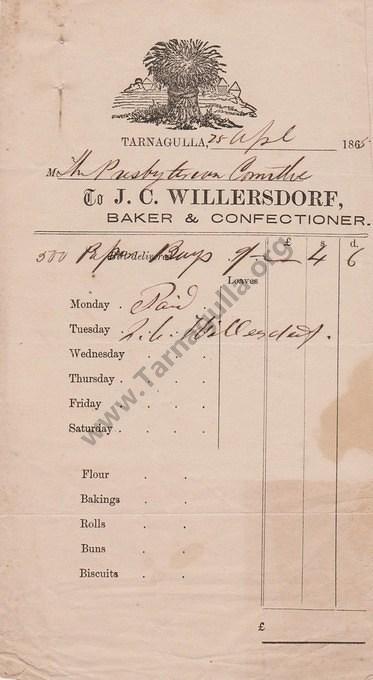 TARNAGULLA, 25 Apl 1865
M The Presbyterian Comttee
To J. C. WILLERSDORF,
BAKER & CONFECTIONER.
£ s. d.
500 Paper Bags 9/- 4 6
Loaves
Monday . Paid
Tuesday J. C. Willersdorf.
Wednesday . .
Thursday . .
Friday . .
Saturday . .
Flour . .
Bakings . .
Rolls . .
Buns . .
Biscuits . .
£
www.Tarnagulla.org